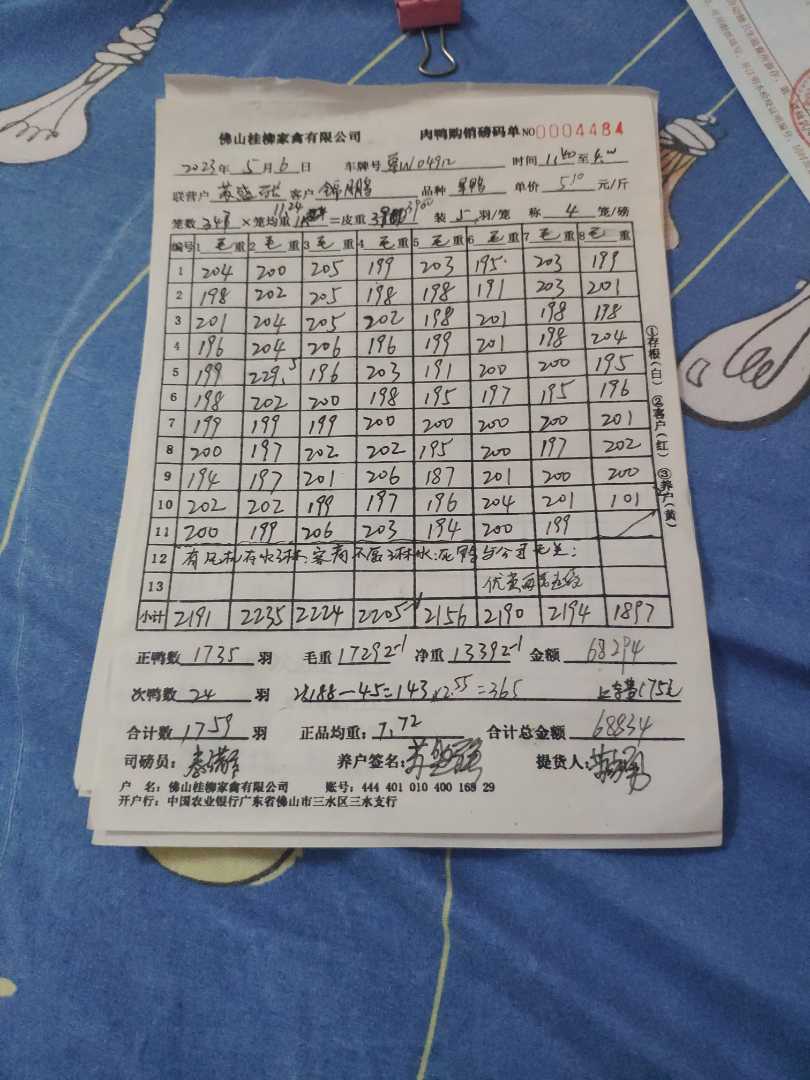 佛山桂柳家禽有限公司 肉鸭购销磅码单 NO 0004484
2023年 5月 6日 车牌号 时间 11:40至
联营户 客户 锦鹏 品种 单价 5.10 元/斤
笼数 348 × 笼均重 11.24 =皮重 3900 装 5 羽/笼 称 4 笼/磅
编号 1 毛重 2 毛重 3 毛重 4 毛重 5 毛重 6 毛重 7 毛重 8 毛重
1 204 200 205 199 203 195 203 199
2 198 202 205 198 198 191 203 201
3 201 204 205 202 198 201 198 198
4 196 204 206 196 199 201 198 204
5 199 229.5 196 203 191 200 200 195
6 198 202 200 198 195 197 195 196
7 199 199 199 200 200 200 200 201
8 200 197 202 202 195 200 197 202
9 194 197 201 206 187 201 200 200
10 202 202 199 197 196 204 201 101
11 200 199 206 203 194 200 199
12 有风机有水
13
小计 2191 2235 2224 2205 2156 2190 2194 1897
正鸭数 1735 羽 毛重 17292 净重 13392 金额 68294
次鸭数 24 羽 188-45=143×2.55=365
合计数 1759 羽 正品均重: 7.72 合计总金额 68834
司磅员: 养户签名: 提货人:
户 名: 佛山桂柳家禽有限公司 账号: 444 401 010 400 168 29
开户行: 中国农业银行广东省佛山市三水区三水支行
①存根(白) ②客户(红) ③养户(黄)